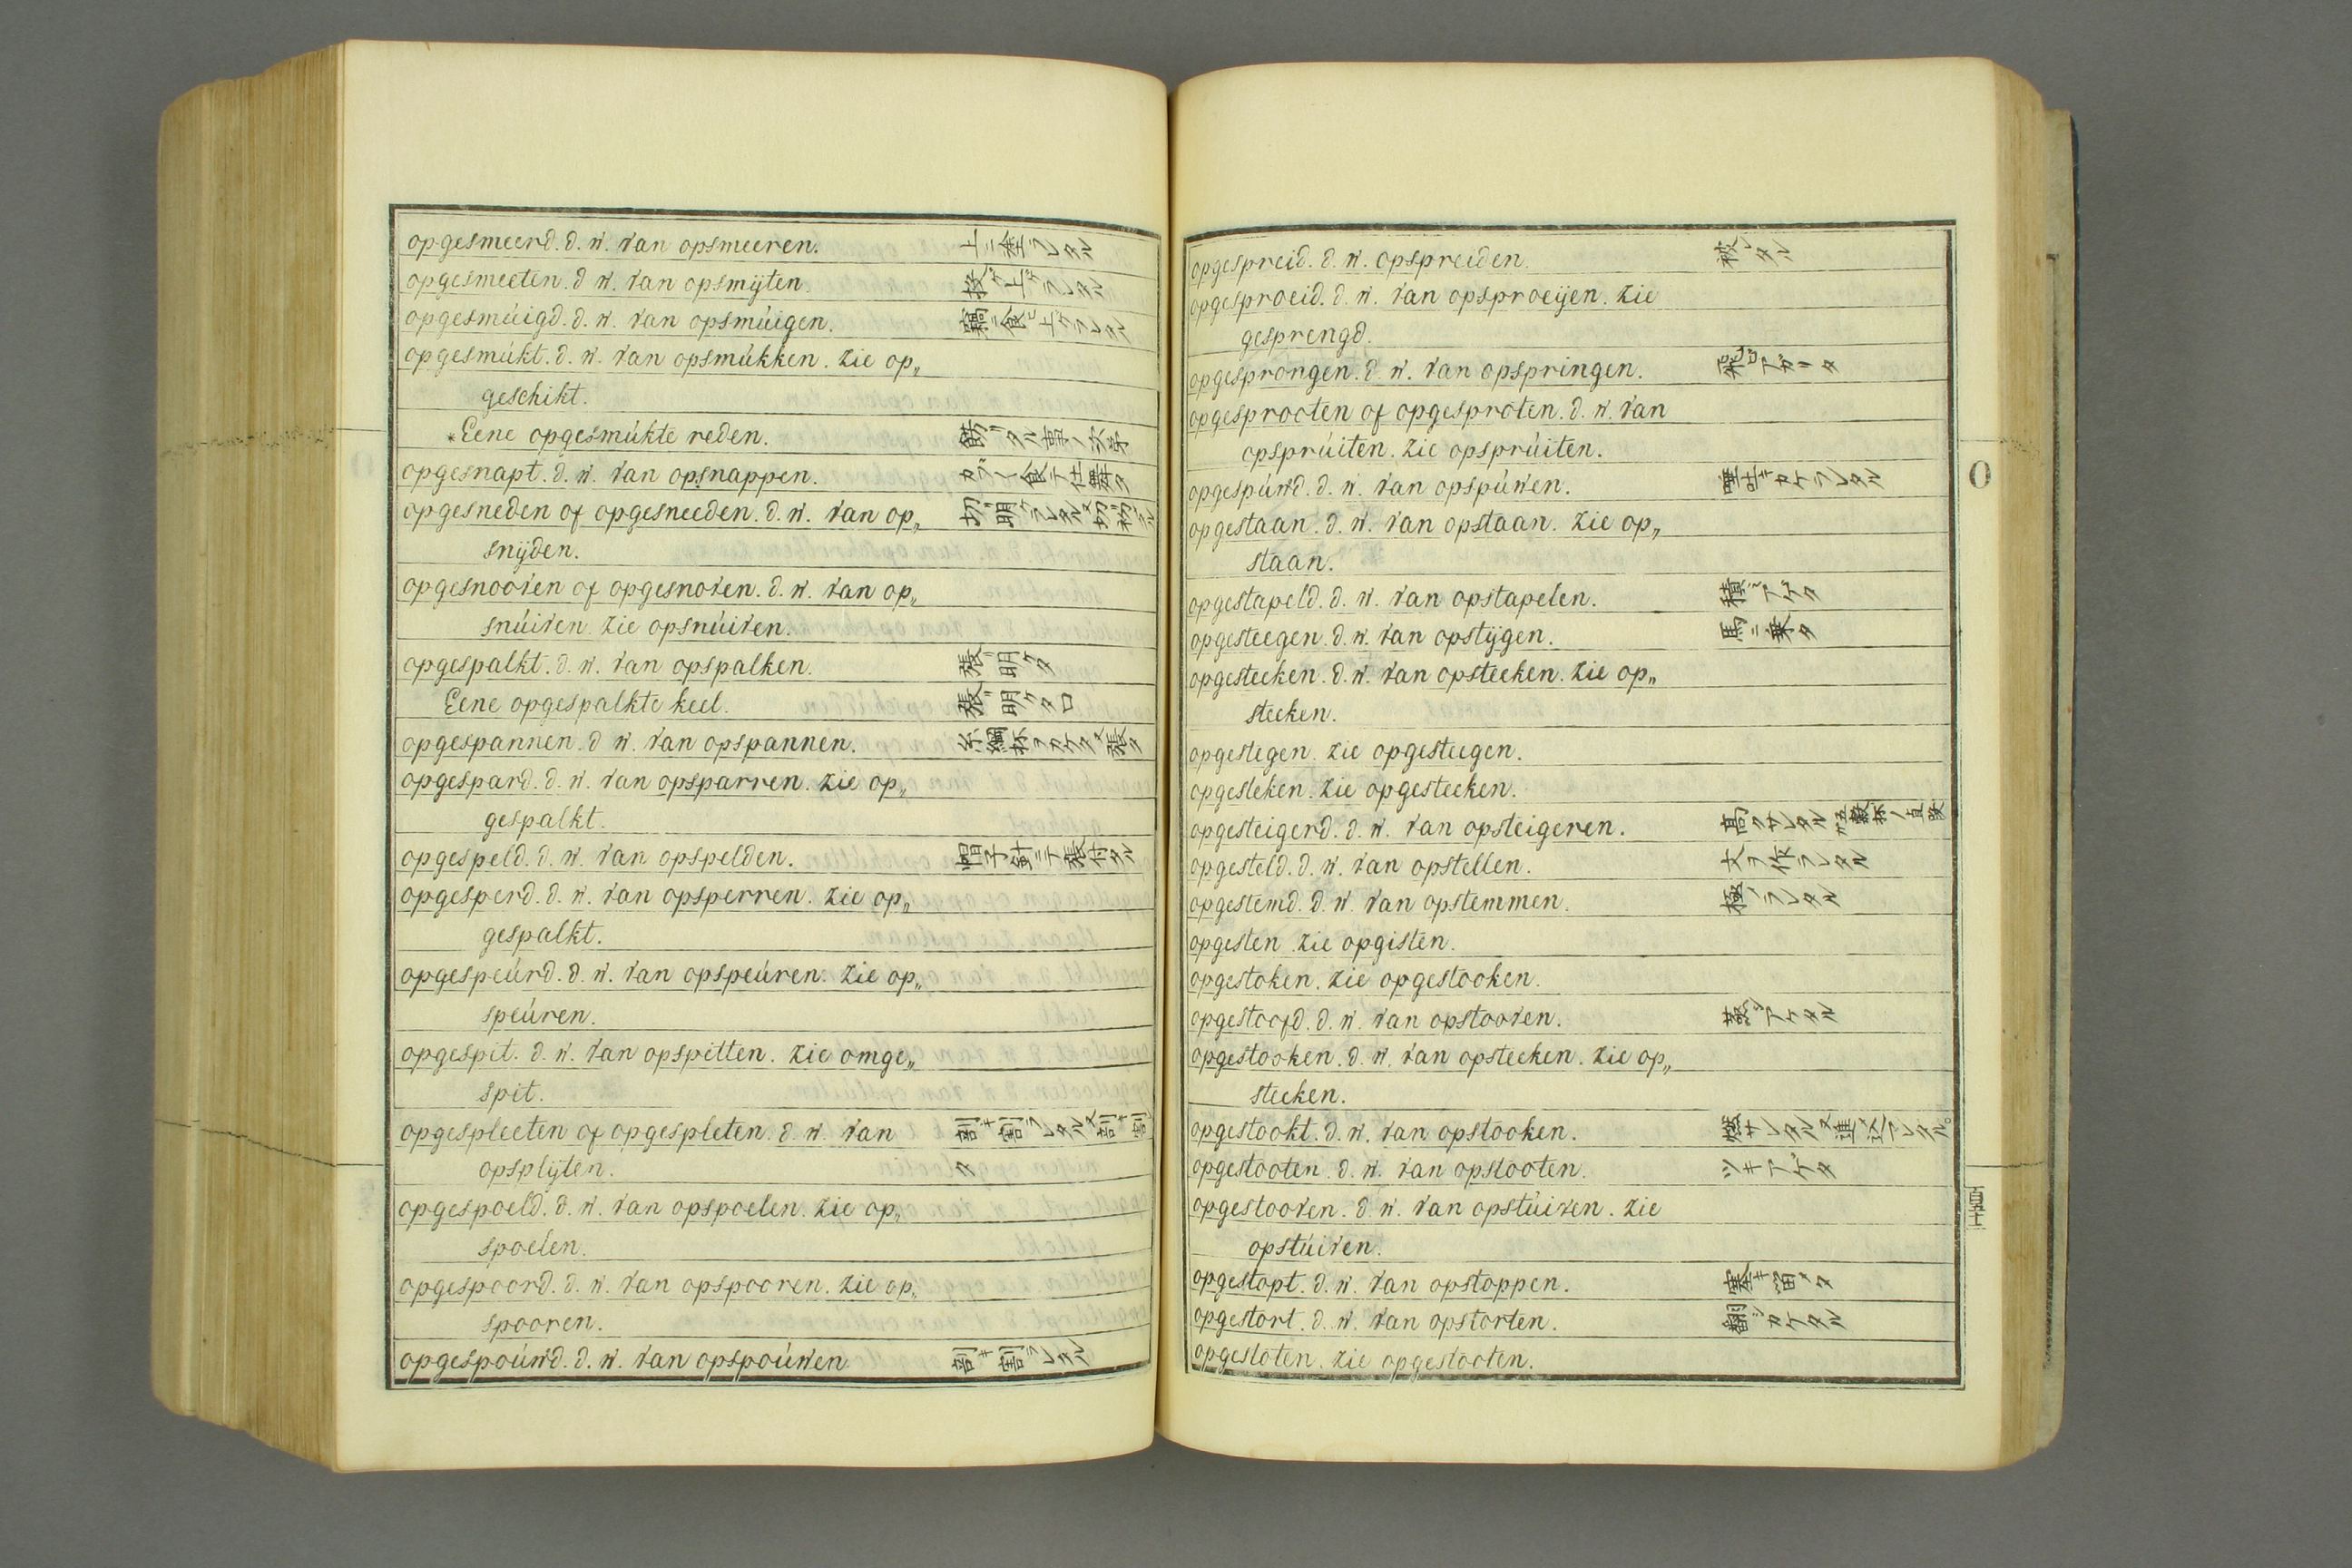 opgesmeerd. d. w. van opsmeeren. 上ニ塗ラレタル
opgesmeeten. d w. van opsmyten. 投ゲ上ゲラレタル
opgesmúigd. d. w. van opsmúigen. 竊ニ食ヒ上ゲラレタル
opgesmúkt. d. w. van opsmúkken. zie op„
geschikt.
*Eene opgesmúkte reden. 餝リタル事ノ文字
opgesnapt. d. w. van opsnappen. 食テ仕舞タ
opgesneden of opgesneeden. d. w. van op„ 切リ明ケラレタル又切リ
snyden.
opgesnooven of opgesnoven. d. w. van op„
snúiven. zie opsnúiven.
opgespalkt. d. w. van opspalken. 張リ明ケタ
Eene opgespalkte keel. 張リ明ケタ口
opgespannen. d w. van opspannen. 糸綱杯ヲカケタ又張タ
opgespard. d. w. van opsparren. zie op„
gespalkt.
opgespeld. d. w. van opspelden. 帽子針ニテ張付タル
opgesperd. d. w. van opsperren. zie op„
gespalkt.
opgespeúrd. d. w. van opspeúren. zie op„
speúren.
opgespit. d. w. van opspitten. zie omge„
spit.
opgespleeten of opgespleten. d. w. van 割キ割ラレタル又割キ割
opsplyten. タ
opgespoeld. d. w. van opspoelen. zie op„
spoelen.
opgespoord. d. w. van opspooren. zie op„
spooren.
opgespoúwd. d. w. van opspoúwen. 割キ割ラレタル
opgespreid. d. w. opspreiden. 被レタル
opgesproeid. d. w. van opsproeijen. zie
gesprengd.
opgesprongen. d. w. van opspringen. 飛ビアガリタ
opgesprooten of opgesproten. d. w. van
opsprúiten. zie opsprúiten.
opgespúwd. d. w. van opspúwen. 唾吐キカケラレタル
opgestaan. d. w. van opstaan. zie op„
staan.
opgestapeld. d. w. van opstapelen. 積ミアゲタ
opgesteegen. d. w. van opstygen. 馬ニ乗タ
opgesteeken. d. w. van opsteeken. zie op„
steeken.
opgestegen. zie opgesteegen.
opgesteken. zie opgesteeken.
opgesteigerd. d. w. van opsteigeren. 高クサレタル 五穀杯ノ直段
opgesteld. d. w. van opstellen. 文ヲ作ラレタル
opgestemd. d. w. van opstemmen. 極メラレタル
opgesten. zie opgisten.
opgestoken. zie opgestooken.
opgestoofd. d. w. van opstooven. アケタル
opgestooken. d. w. van opsteeken. zie op„
steeken.
opgestookt. d. w. van opstooken. 燃サレタル又進メ込マレタル。
opgestooten. d. w. van opstooten. ツキアゲタ
opgestooven. d. w. van opstúiven. zie
opstúiven.
opgestopt. d. w. van opstoppen. 塞キ留メタ
opgestort. d. w. van opstorten. 翻シカケタル
opgestoten. zie opgestooten.
O